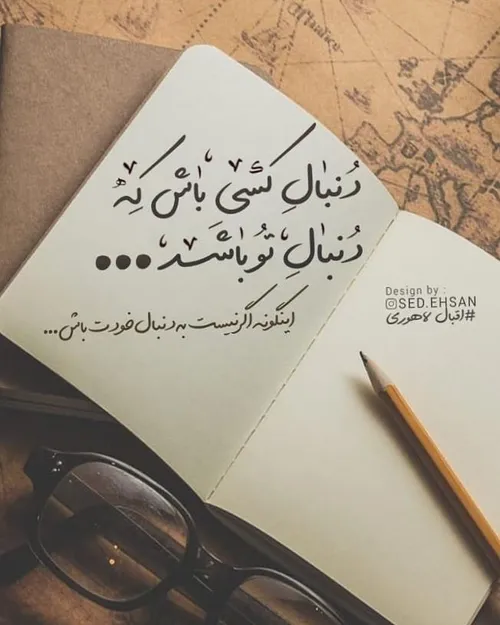 دُنبالِ کسی باش که
دُنبالِ تُو باشَد...
اینگونه اگر نیست به دنبال خودت باش...
Design by :
SED.EHSAN
#اقبال لاهوری